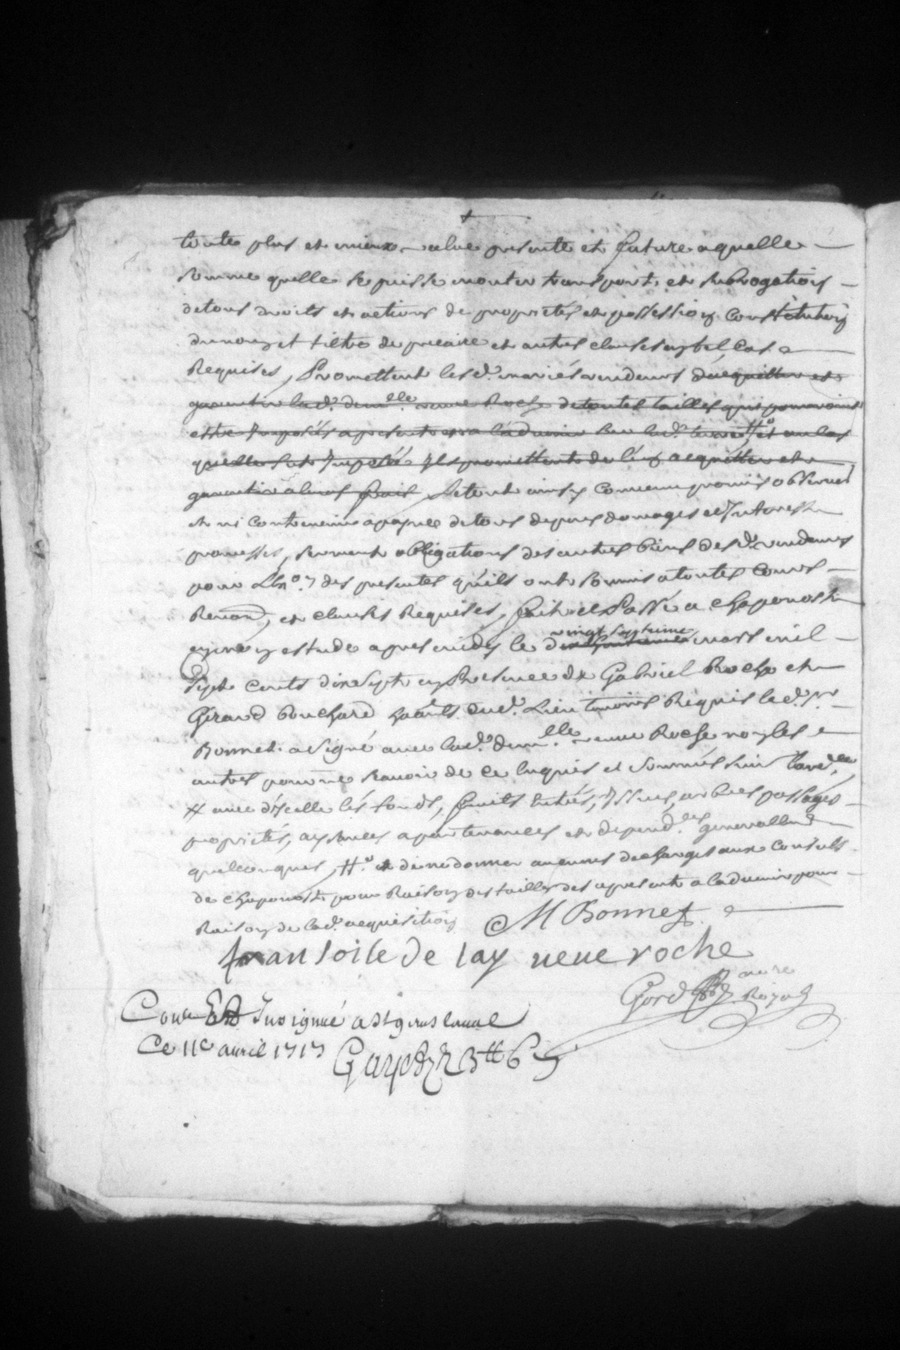 toute plus et mieux value presente et future a quelle
somme quelle se puisse monter transport et subrogation
de tous droits et actions de proprietés et possession constitution
du nom et tiltre de precaire et autres clauses en tel cas
Requises, Promettent les d. mariés vendeurs d'acquitter et
garantir lad. demlle veuve Roche de toutes tailles qui pourroient
estre Imposés a present et a l'advenir
Imposée Ils promettent de acquitter et
garantir a leurs frais, Et tout ainsy convenu promis observer
et ny contrevenir a payne de tous depens domages et Interest
promesses, serment obligations des autres biens des d. vendeurs
pour des presentes qu'ils ont soumis a toutes cours
Renon, et clauses Requises, fait et Passé a chaponost
en mon estude apres midy le vingt septieme mars mil
sept cents dix sept en presence de Gabriel Roche et
Giraud Bouchard hants dud. Lieu temoins Requis led. sr
Bonnet a signé avec lad. demlle veuve Roche non les
autres pour ne scavoir de ce Enquis et sommés
avec d'icelle les fonds, fruits Entrés, Issues, arbres passages
proprietés, aysances apartenances et depend.ces generallemt
quelconques, et de ne donner aucunes descharges aux consuls
de chaponost pour Raison des tailles des a present a l'advenir pour
Raison de lad. acquisition
M Bonnet
fransoise de lay veue roche
Gord no.re Royal
Con.lé Et Insigné a St genis laval
Ce 11e avril 1717